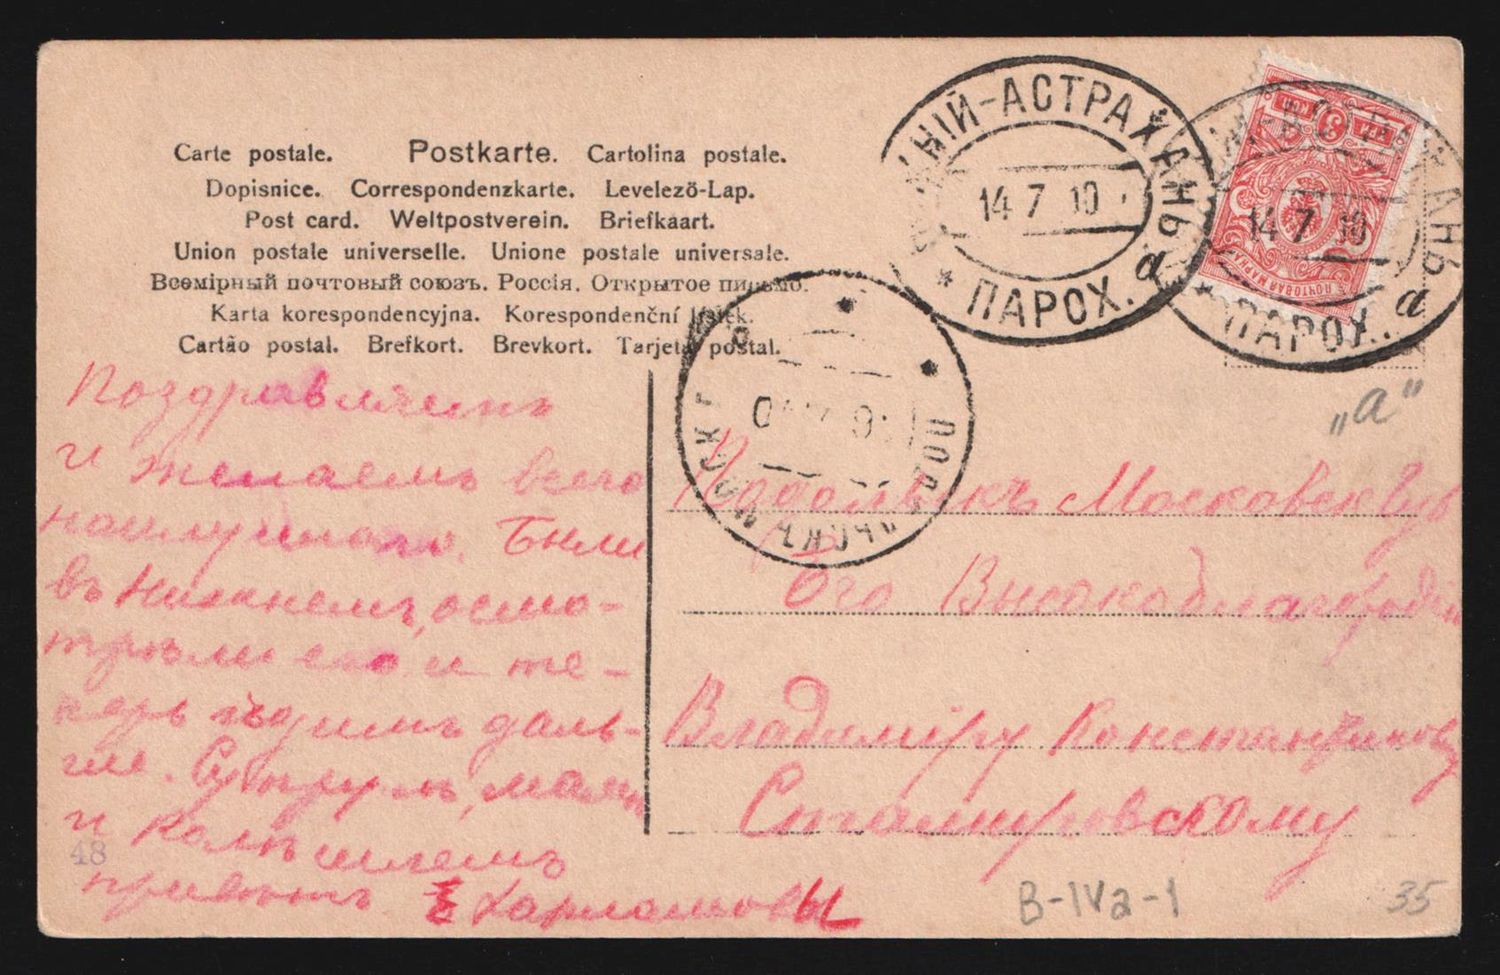 Carte postale. Postkarte. Cartolina postale.
Dopisnice. Correspondenzkarte. Levelező-Lap.
Post card. Weltpostverein. Briefkaart.
Union postale universelle. Unione postale universale.
Всемірный почтовый союзъ. Россія. Открытое письмо.
Karta korespondencyjna. Korespondenční lístek.
Cartão postal. Brefkort. Brevkort. Tarjeta postal.
НІЙ-АСТРАХАНЬ
14 7 10
* ПАРОХ. а
14 7 10
* ПАРОХ. а
3
ПОЧТОВАЯ МАРКА
ПОДОЛЬСКЪ МОСК Г
„а"
Поздравляемъ
и желаемъ всего
наилучшаго. Были
въ Нижнемъ, осмо-
трѣли его и те-
перь ѣдимъ даль-
ше.
и Колѣ шлемъ
привѣтъ. Харламовы
48
Подольскъ Московск Губ
Его Высокоблагородію
Владиміру Константиновичу
B-IVa-1
35